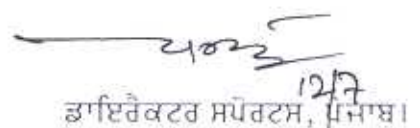 12/7
ਡਾਇਰੈਕਟਰ ਸਪੋਰਟਸ, ਪੰਜਾਬ।